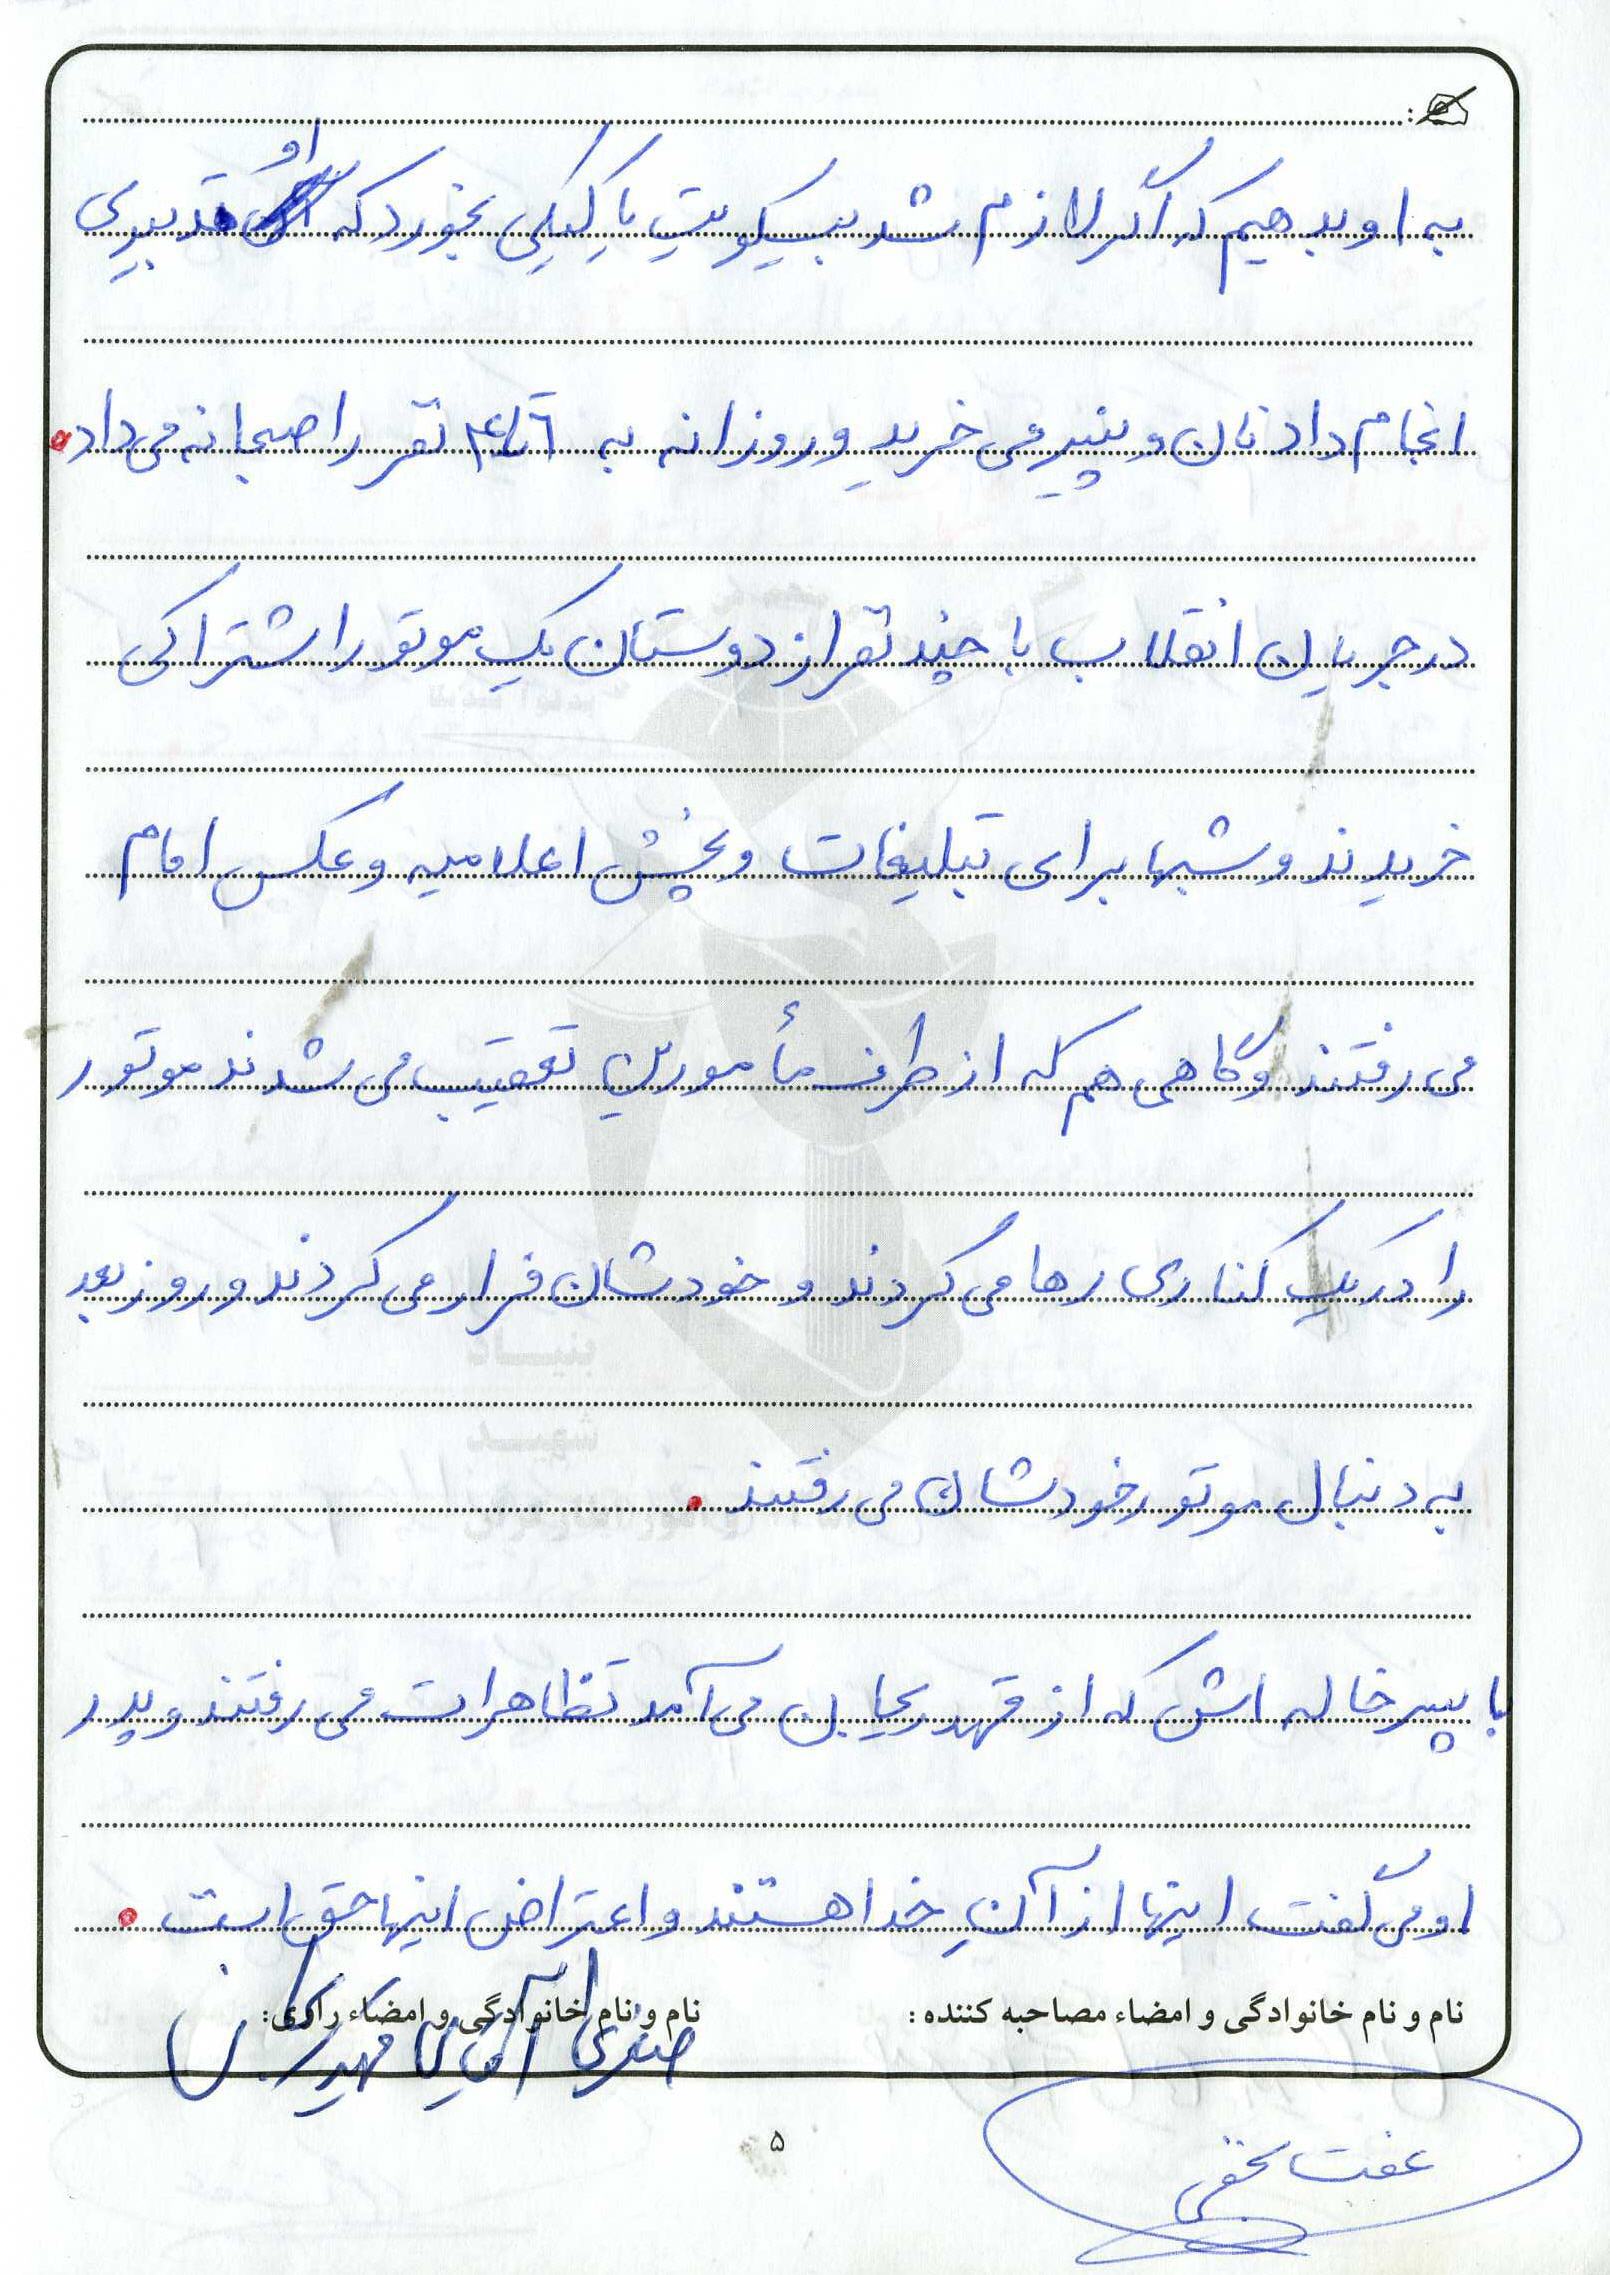 به او بدهیم که اگر لازم شد بیسکویت یا کیکی بخورد که او تدبیری
انجام داد نان و پنیر می خرید و روزانه به ۴ تا ۶ نفر را صبحانه می داد.
در جریان انقلاب با چند نفر از دوستان یک موتور اشتراکی
خریدند و شبها برای تبلیغات و پخش اعلامیه و عکس امام
می رفتند و گاهی هم که از طرف مأمورین تعقیب می شدند موتور
را در یک کناری رها می کردند و خودشان فرار می کردند و روز بعد
به دنبال موتور خودشان می رفتند.
با پسر خاله اش که از قهدریجان می آمد تظاهرات می رفتند و پدر
او می گفت اینها از آنِ خدا هستند و اعتراض اینها حق است.
نام و نام خانوادگی و امضاء مصاحبه کننده :
نام و نام خانوادگی و امضاء راوی:
عفت نجفی
۵
بنیاد
شهید